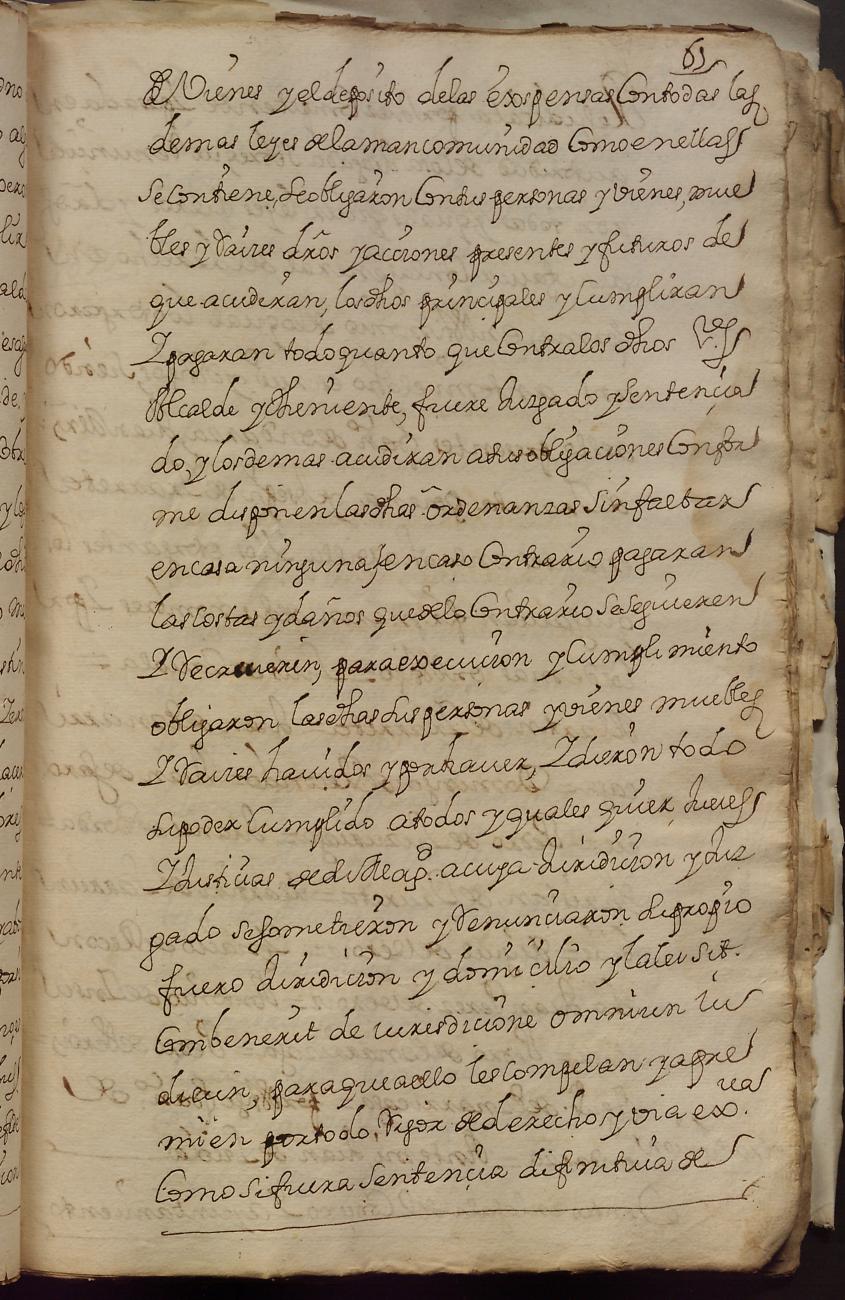 61
de Vienes y el deposito delas expensas Contodas las
demas leyes dela mancomunidad Como en ellas
se Contiene, se obligaron Consus personas y vienes, mue
bles y Raices dr̃os y acciones presentes y futuros de
que acudiran, los dhos prinçipales y Cumpliran
Y pagaran todo quanto que Contra los dhos
Alcalde y theniente, fuere Juzgado y Sentençia
do, y los demas acudiran a sus obligaciones Confor
me disponen las dhas ordenanzas sin faltar
en casa ninguna, en caso Contrario pagaran
las Costas y daños que delo Contrario se siguieren
Y Recrecierin, para execucion y Cumplimiento
obligaron las dhas sus personas y vienes muebles
Y Raices havidos y por haver, Y dieron todo
su poder Cumplido a todos y quales quier Jueces
Y Justicias de su Magd. a cuya Juridicion y Juz
gado se sometieron y Renunciaron su propio
fuero Juridicion y domicilio y la lei sit.
Combenerit de iurisdicione omniun iu
dicun, para que a ello les Compelan y apre
mien por todo Rigor de derecho y via exe.iva
Como si fuera Sentençia difinitiva de